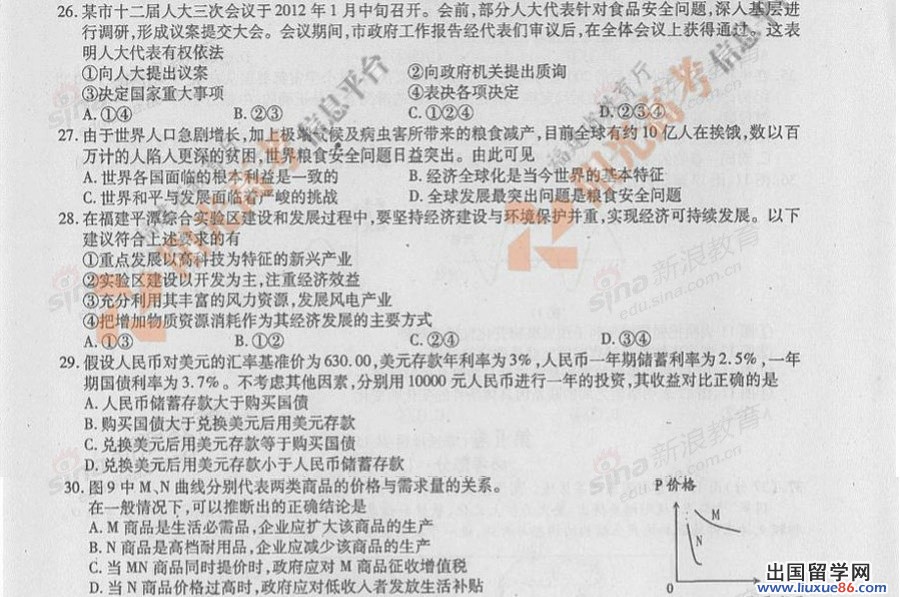 26. 某市十二届人大三次会议于2012年1月中旬召开。会前,部分人大代表针对食品安全问题,深入基层进
行调研,形成议案提交大会。会议期间,市政府工作报告经代表们审议后,在全体会议上获得通过。这表
明人大代表有权依法
①向人大提出议案 ②向政府机关提出质询
③决定国家重大事项 ④表决各项决定
A. ①④ B. ②③ C. ①②④ D. ②③④
27. 由于世界人口急剧增长,加上极端气候及病虫害所带来的粮食减产,目前全球有约10亿人在挨饿,数以百
万计的人陷入更深的贫困,世界粮食安全问题日益突出。由此可见
A. 世界各国面临的根本利益是一致的 B. 经济全球化是当今世界的基本特征
C. 世界和平与发展面临着严峻的挑战 D. 全球发展最突出问题是粮食安全问题
28. 在福建平潭综合实验区建设和发展过程中,要坚持经济建设与环境保护并重,实现经济可持续发展。以下
建议符合上述要求的有
①重点发展以高科技为特征的新兴产业
②实验区建设以开发为主,注重经济效益
③充分利用其丰富的风力资源,发展风电产业
④把增加物质资源消耗作为其经济发展的主要方式
A. ①③ B. ①② C. ②④ D. ③④
29. 假设人民币对美元的汇率基准价为630.00,美元存款年利率为3%,人民币一年期储蓄利率为2.5%,一年
期国债利率为3.7%。不考虑其他因素,分别用10000元人民币进行一年的投资,其收益对比正确的是
A. 人民币储蓄存款大于购买国债
B. 购买国债大于兑换美元后用美元存款
C. 兑换美元后用美元存款等于购买国债
D. 兑换美元后用美元存款小于人民币储蓄存款
30. 图9中M、N曲线分别代表两类商品的价格与需求量的关系。
在一般情况下,可以推断出的正确结论是
A. M商品是生活必需品,企业应扩大该商品的生产
B. N商品是高档耐用品,企业应减少该商品的生产
C. 当MN商品同时提价时,政府应对M商品征收增值税
D. 当N商品价格过高时,政府应对低收入者发放生活补贴
P 价格
M
N
0
阳光高考
信息平台
福建省教育厅
阳光高考
信息平台
sina新浪教育
edu.sina.com.cn
出国留学网
www.liuxue86.com